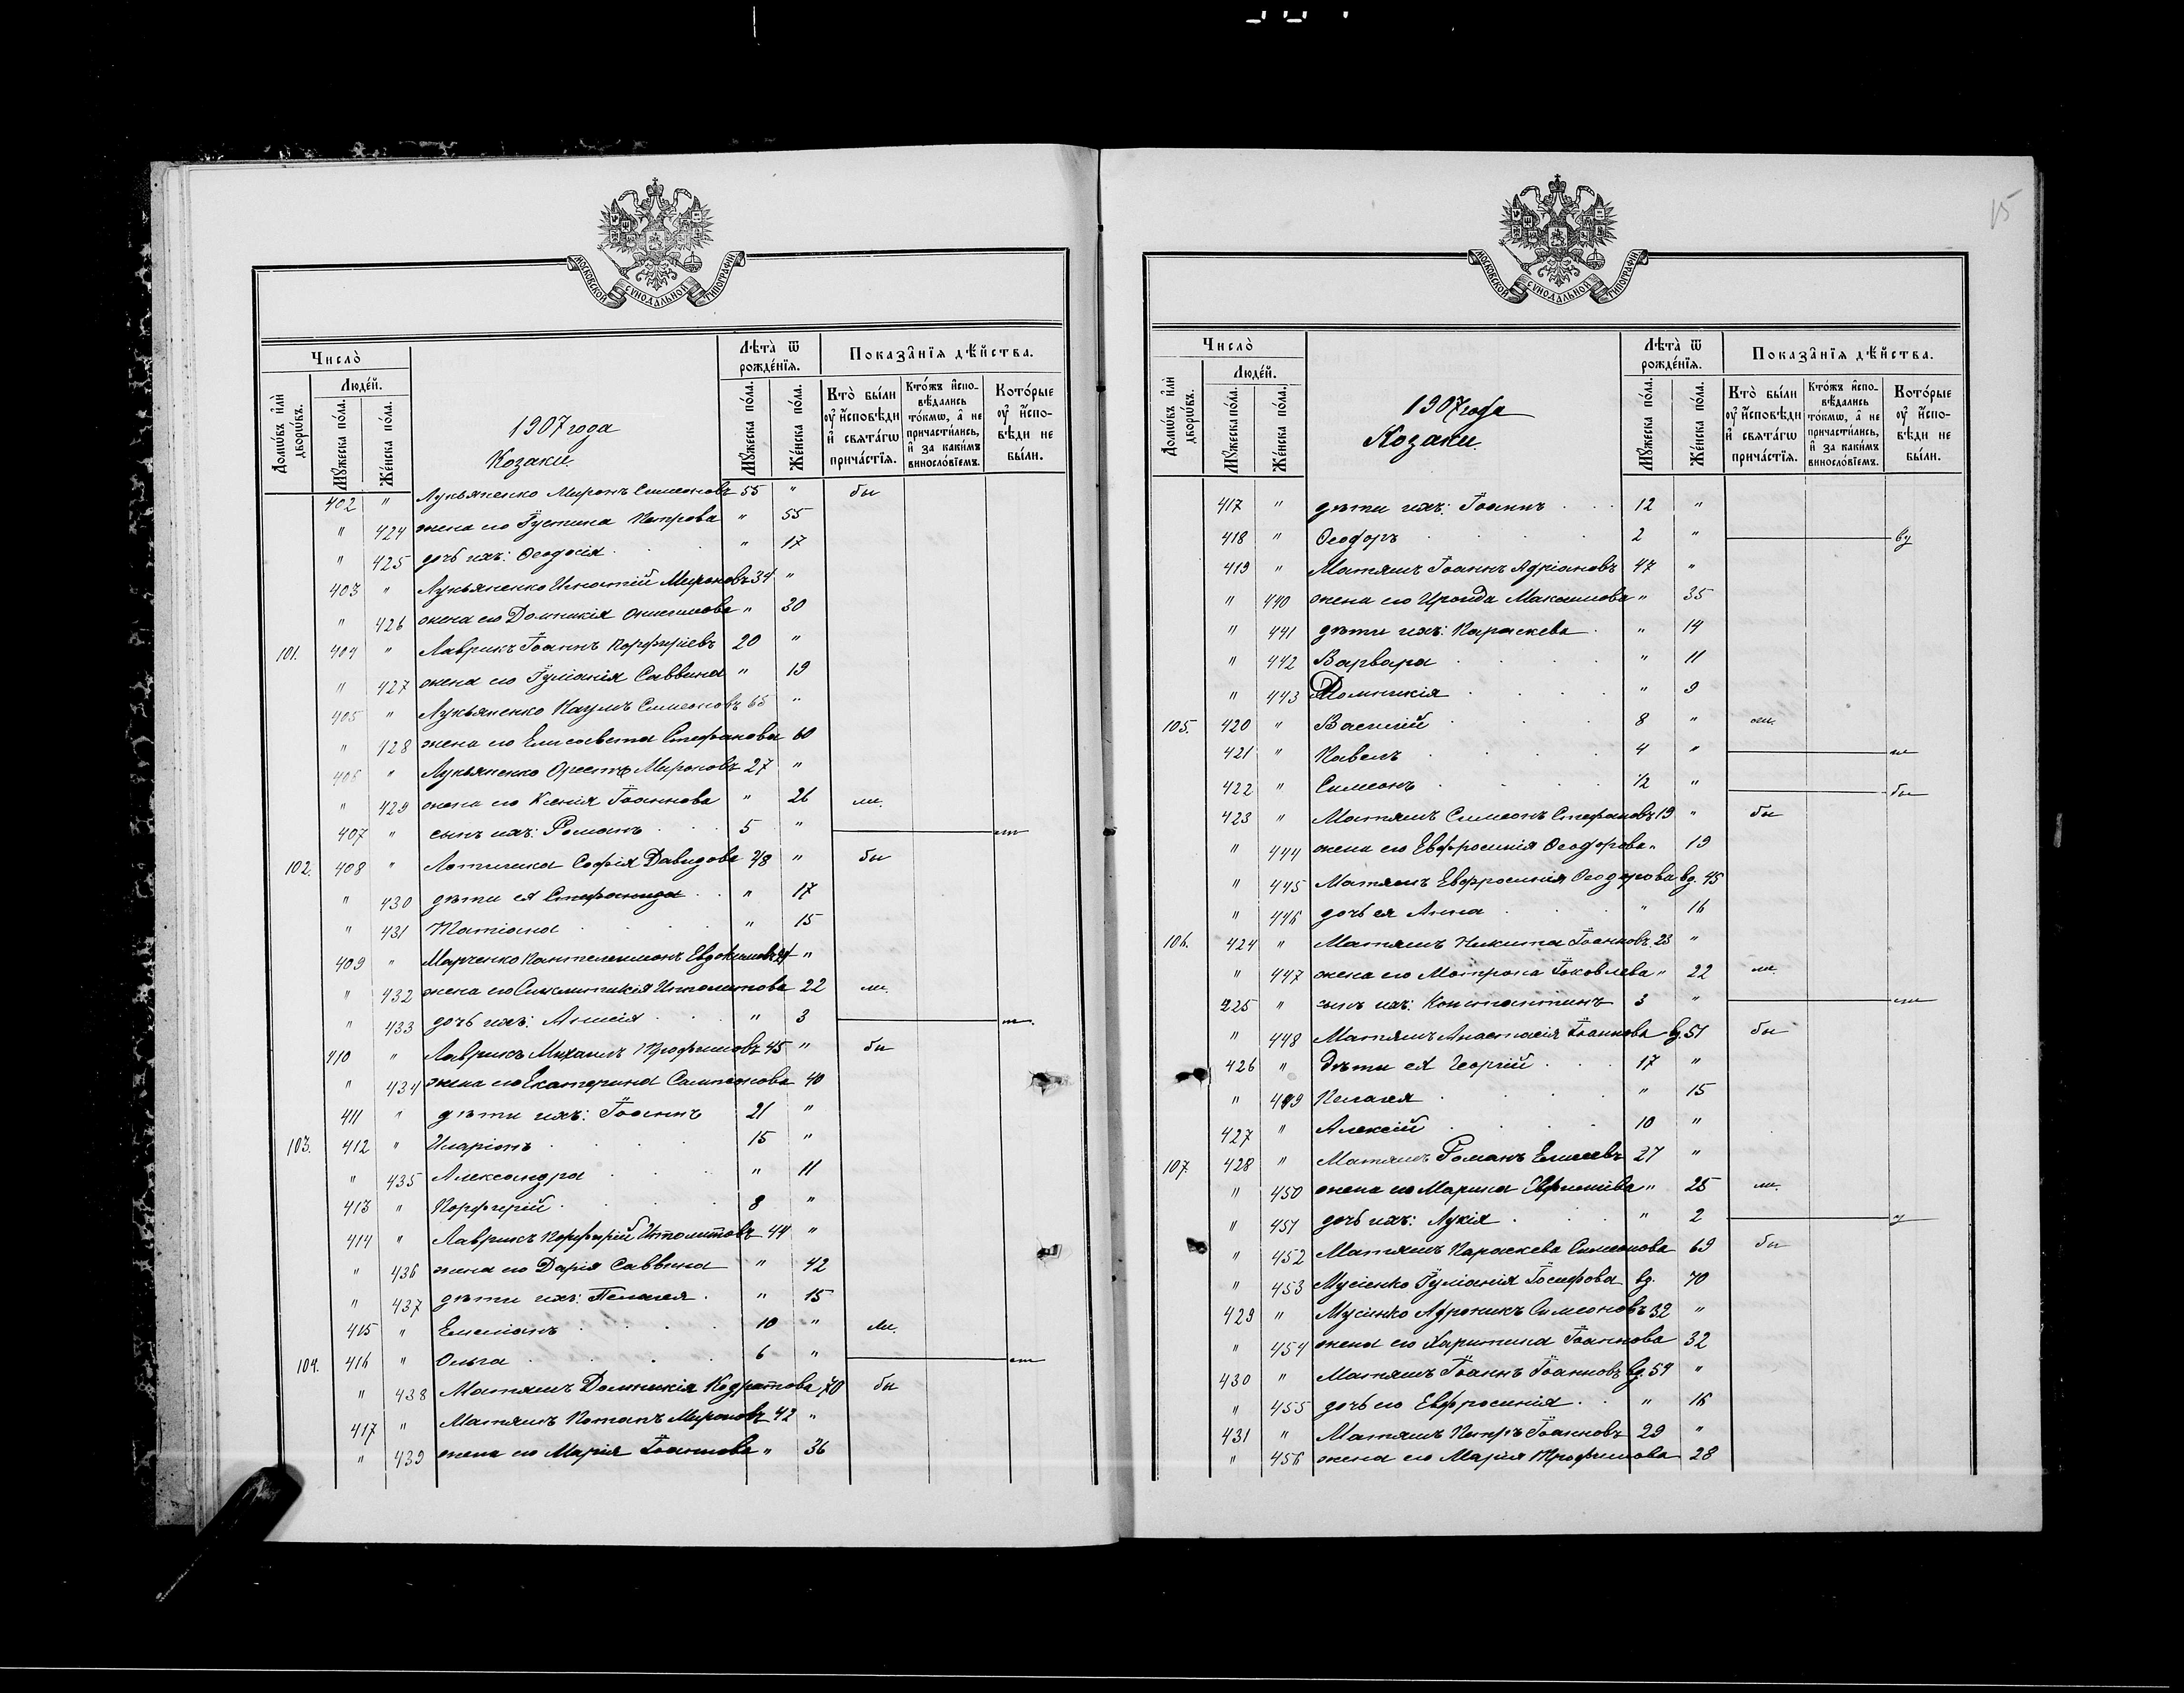 МОСКОВСКОЙ СѴНОДАЛЬНОЙ ТИПОГРАФІИ
Число̀
Домѡ́въ и҆лѝ дворѡ́въ.
Люде́й.
Мꙋ́жеска по́ла.
Же́нска по́ла.
1907 года
Козаки.
Лѣ́та ѿ рожде́нїѧ.
Мꙋ́жеска по́ла.
Же́нска по́ла.
Показа̑нїѧ дѣ́йства.
Кто̀ бы́ли ᲂу҆ и҆́сповѣди и҆ свѧта́гѡ прича́стїѧ.
Кто́жъ и҆спо-вѣ́дались то́кмѡ, а҆ не причасти́лись, и҆ за каки́мъ винослѡ́вїемъ.
Кото́рые ᲂу҆ и҆́спо-вѣди не бы́ли.
402 " Лукьяненко Миронъ Симеоновъ 55 " бы
" 424 жена его Іустина Петрова " 55
" 425 дочь ихъ: Ѳеодосія " 17
403 " Лукьяненко Игнатій Мироновъ 34 "
" 426 жена его Домникія Онисимова " 30
101. 404 " Лаврикъ Іоаннъ Порфиріевъ 20 "
" 427 жена его Іуліанія Саввина " 19
405 " Лукьяненко Наумъ Симеоновъ 65 "
" 428 жена его Елисавета Стефанова 60
406 " Лукьяненко Орестъ Мироновъ 27 "
" 429 жена его Ксенія Іоаннова " 26 ли.
407 " сынъ ихъ: Романъ 5 "
102. 408 " Софія Давидова " бы
" 430 дѣти ея Стефанида " 17
" 431 Татіана " 15
409 " Марченко Пантелеимонъ Евдокимовъ "
" 432 жена его Синклитикія Ипполитова 22 ли.
" 433 дочь ихъ: Анисія " 3
410 " Лаврикъ Михаилъ Трофимовъ 45 " бы
" 434 жена его Екатерина Сампсонова 40
411 " дѣти ихъ: Іоаннъ 21 "
103. 412 " Иларіонъ 15 "
" 435 Александра " 11
413 " Порфирій 8 "
414 " Лаврикъ Порфирій Ипполитовъ 44 "
" 436 жена его Дарія Саввина " 42
" 437 дѣти ихъ: Пелагея " 15
415 " Емеліанъ 10 " ли.
104. 416 " Ольга 6 "
" 438 Матяшъ Домникія Кодратова 70 бы
417 " Матяшъ Потапъ Мироновъ 42 "
" 439 жена его Марія Іоаннова " 36
15
МОСКОВСКОЙ СѴНОДАЛЬНОЙ ТИПОГРАФІИ
Число̀
Домѡ́въ и҆лѝ дворѡ́въ.
Люде́й.
Мꙋ́жеска по́ла.
Же́нска по́ла.
1907 года
Козаки.
Лѣ́та ѿ рожде́нїѧ.
Мꙋ́жеска по́ла.
Же́нска по́ла.
Показа̑нїѧ дѣ́йства.
Кто̀ бы́ли ᲂу҆ и҆́сповѣди и҆ свѧта́гѡ прича́стїѧ.
Кто́жъ и҆спо-вѣ́дались то́кмѡ, а҆ не причасти́лись, и҆ за каки́мъ винослѡ́вїемъ.
Кото́рые ᲂу҆ и҆́спо-вѣди не бы́ли.
417 " дѣти ихъ: Іоаннъ 12 "
418 " Ѳеодоръ 2 "
419 " Матяшъ Іоаннъ Адріановъ 47 "
" 440 жена его Ираида Максимова " 35
" 441 дѣти ихъ: Параскева " 14
" 442 Варвара " 11
" 443 Домникія " 9
105. 420 " Василій 8 " ли.
421 " Павелъ 4 "
422 " Симеонъ 1/2 " бы
423 " Матяшъ Симеонъ Стефановъ 19 " бы
" 444 жена его Евфросинія Ѳеодорова " 19
" 445 Матяшъ Евфросинія Ѳеодорова вд. 45
" 446 дочь ея Анна " 16
106. 424 " Матяшъ Никита Іоанновъ 23 "
" 447 жена его Матрона Іаковлева " 22 ли.
225 " сынъ ихъ: Константинъ 3 "
" 448 Матяшъ Анастасія Іоаннова вд. 51 бы
426 " дѣти ея Георгій 17 "
" 449 Пелагея " 15
427 " Алексій 10 "
107. 428 " Матяшъ Романъ Елисеевъ 27 "
" 450 жена его Марина " 25 ли.
" 451 дочь ихъ: Лукія " 2
" 452 Матяшъ Параскева Симеонова 69 бы
" 453 Мусіенко Іуліанія Іосифова вд. 70
429 " Мусіенко Андроникъ Симеоновъ 32 "
" 454 жена его Харитина Іоаннова 32
430 " Матяшъ Іоаннъ Іоанновъ вд. 54 "
" 455 дочь его Евфросинія " 16
431 " Матяшъ Петръ Іоанновъ 29 "
" 456 жена его Марія Трофимова 28